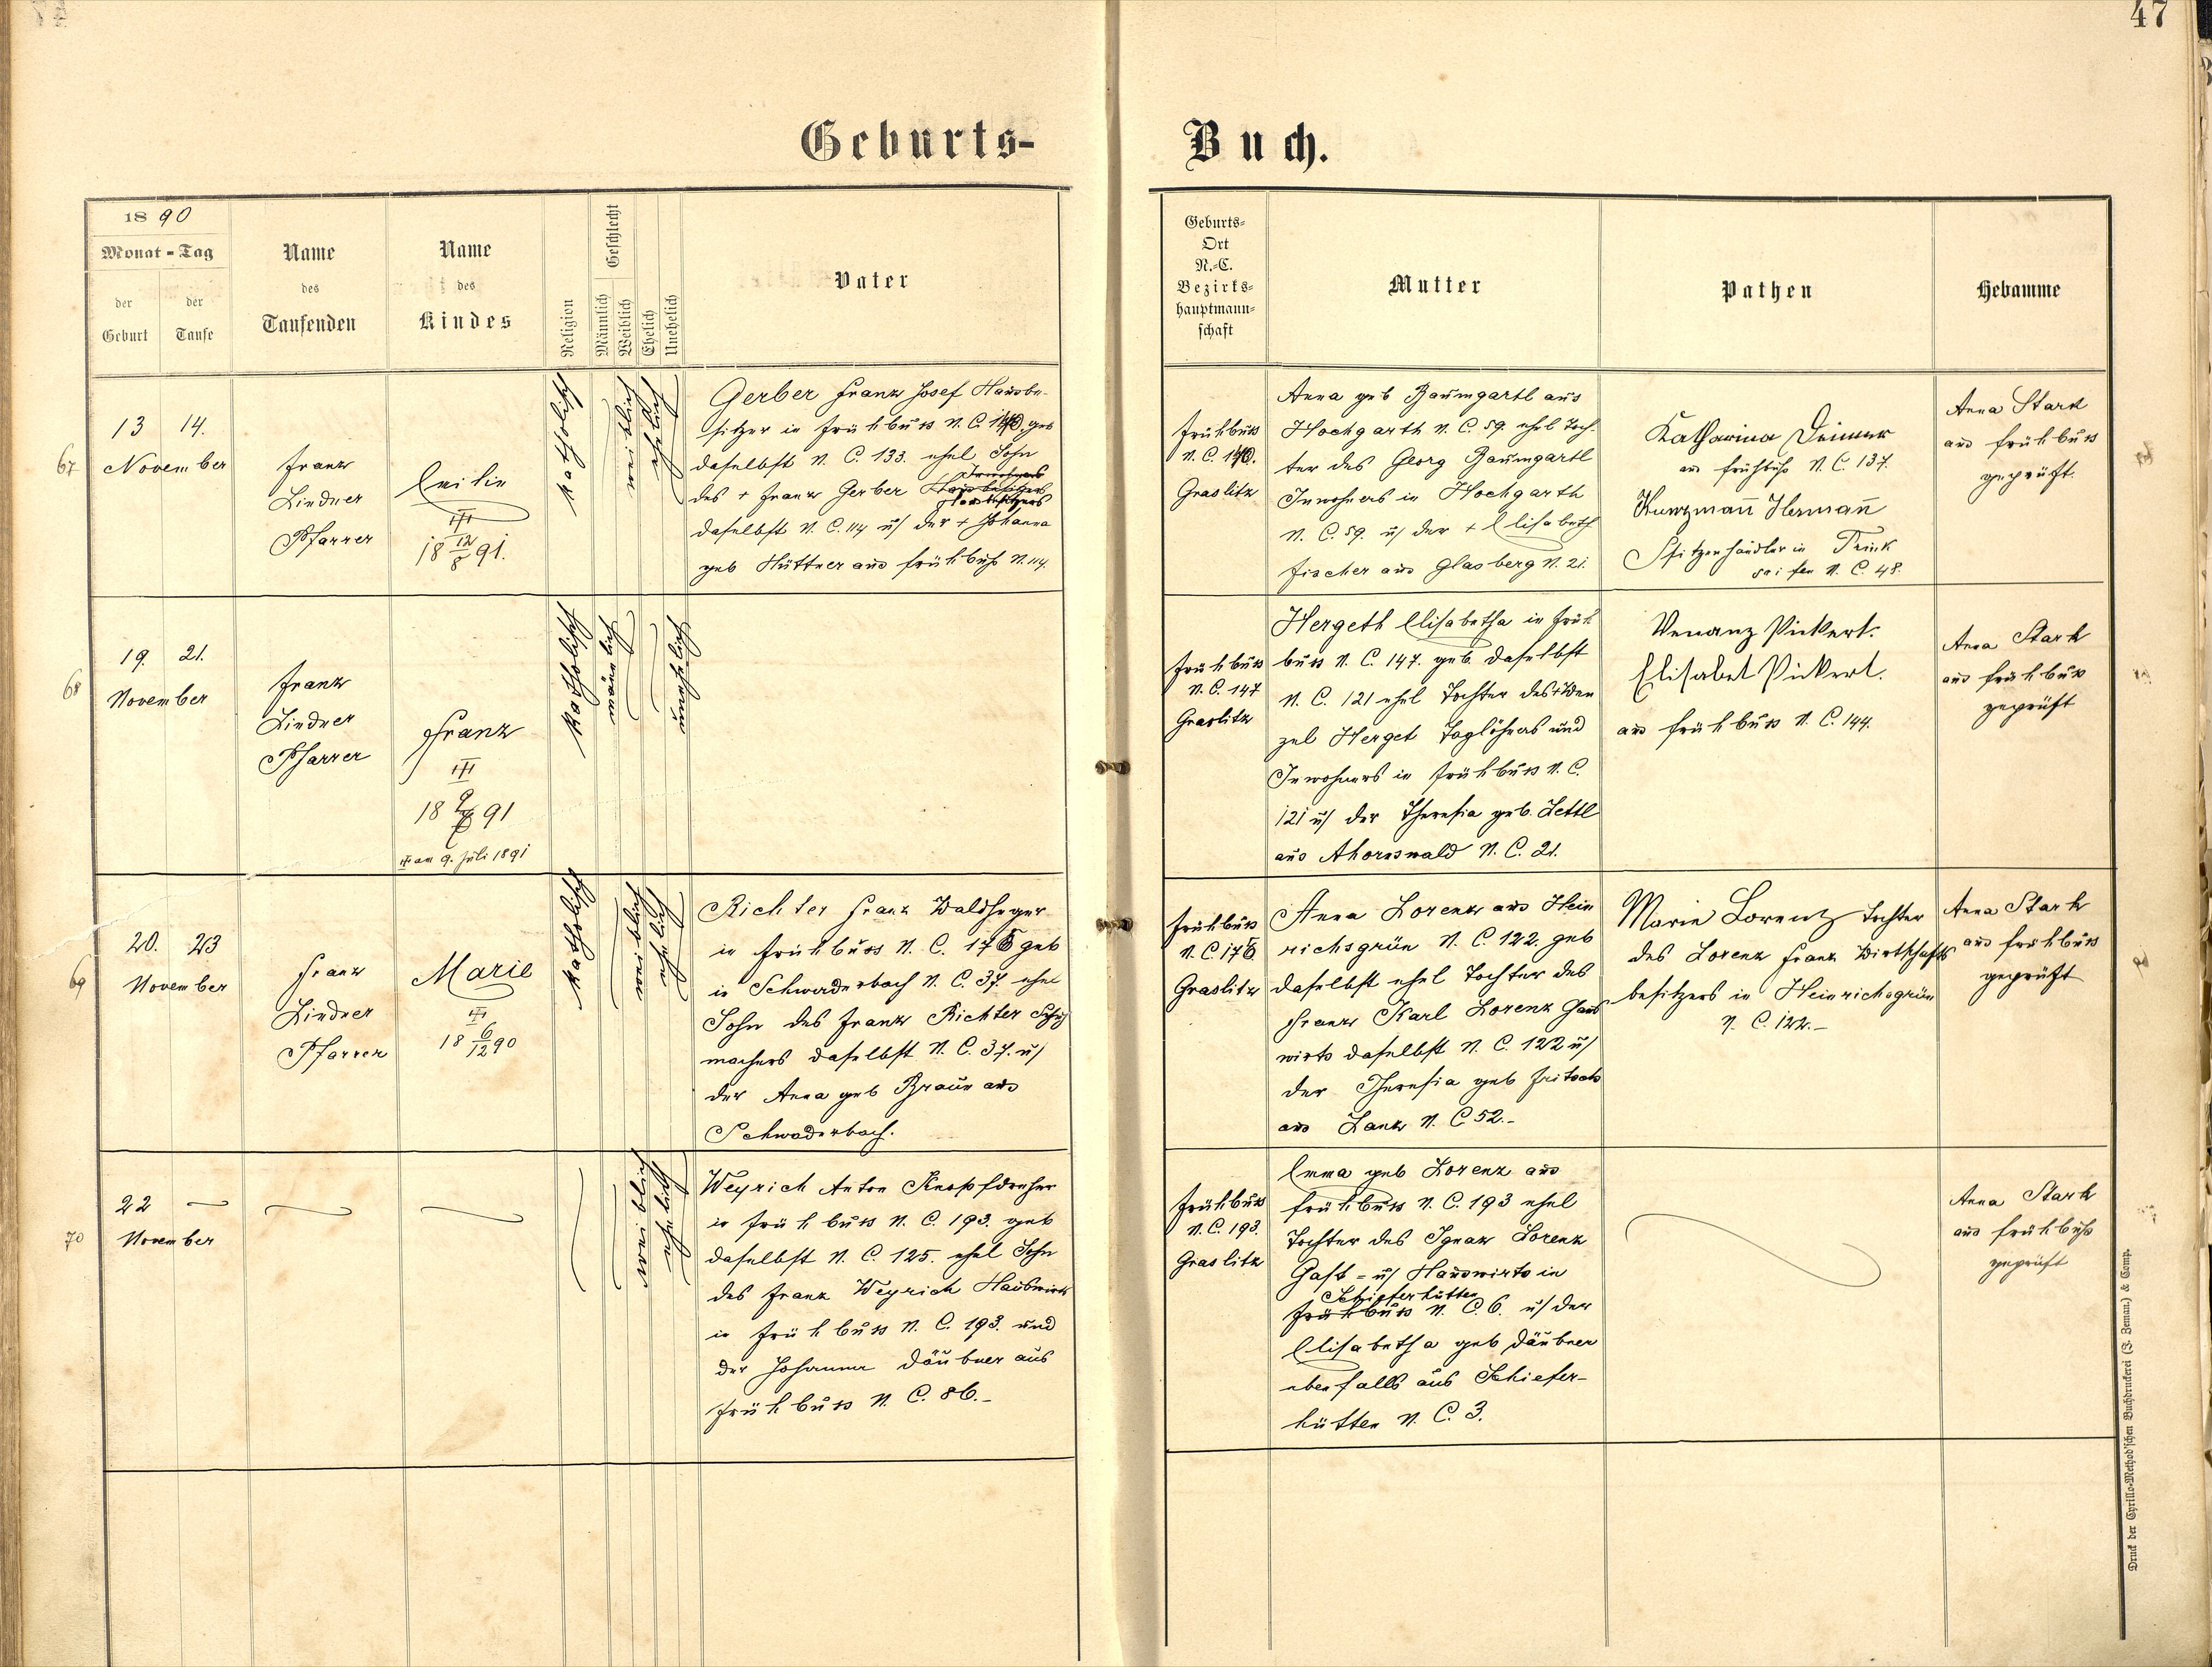 47
Geburts-Buch.
1890
Monat-Tag
der Geburt
der Taufe
Name des Taufenden
Name des Kindes
Religion
Geschlecht
Männlich
Weiblich
Ehelich
Unehelich
Vater
Geburts-
Ort
N.-C.
Bezirks-
hauptmann-
schaft
Mutter
Pathen
Hebamme
67
13 14.
November
Franz
Lindner
Pfarrer
Emilie
18 12/8 91.
katholisch
weiblich
ehelich
Gerber Franz Josef Hausbe-
sitzer in Frühbuss N. C. 140, geb
daselbst N. C. 133. ehel Sohn
des + Franz Gerber
Hausbesitzers
daselbst N. C. 114 u/ der + Johanna
geb Hüttner aus Frühbuß N. 114.
Frühbuss
N. C. 140.
Graslitz
Anna geb Baumgartl aus
Hochgarth N. C. 59. ehel Toch-
ter des Georg Baumgartl
Inwohners in Hochgarth
N. C. 59. u/ der + Elisabeth
Fischer aus Glasberg N. 21.
Katharina
aus Frühbuß N. C. 137.
Kunzmann̄ Herman̄
Spitzenhändler in Trink
saifen N. C. 48.
Anna Stark
aus Frühbuss
geprüft.
68
19. 21.
November
Franz
Lindner
Pfarrer
Franz
18 9/7 91
am 9. Juli 1891
katholisch
männlich
unehelich
Frühbuss
N. C. 147
Graslitz
Hergeth Elisabetha in Früh
buss N. C. 147. geb. daselbst
N. C. 121 ehel Tochter des + Wen
zel Herget Taglöhners und
Inwohners in Frühbuss N. C.
121 u/ der Theresia geb. Zettl
aus Ahornswald N. C. 21.
Venanz Pickert.
Elisabet Pickert.
aus Frühbuss N. C. 144.
Anna Stark
aus Frühbuss
geprüft
69
20. 23
November
Franz
Lindner
Pfarrer
Marie
18 6/12 90
katholisch
weiblich
ehelich
Richter Franz Waldheger
in Frühbuss N. C. 176 geb
in Schwaderbach N. C. 37. ehel
Sohn des Franz Richter
machers daselbst N. C. 37. u/
der Anna geb Braun aus
Schwaderbach.
Frühbuss
N. C. 176
Graslitz
Anna Lorenz aus Hein
richsgrün N. C. 122. geb
daselbst ehel Tochter des
Franz Karl Lorenz Haus
wirts daselbst N. C. 122 u/
der Theresia geb Fritsch
aus Lanz N. C 52.-
Marie Lorenz Tochter
des Lorenz Franz Wirthschafts
besitzers in Heinrichsgrün
N. C. 122.-
Anna Stark
aus Frühbuss
geprüft
70
22
November
weiblich
ehelich
Weyrich Anton Knopfdreher
in Frühbuss N. C. 193. geb
daselbst N. C. 125. ehel Sohn
des Franz Weyrich Hauswirts
in Frühbuss N. C. 193. und
der Johanna Däubner aus
Frühbuss N. C. 86.-
Frühbuss
N. C. 193.
Graslitz
Emma geb Lorenz aus
Frühbuss N. C. 193 ehel
Tochter des Ignaz Lorenz
Gast- u/ Hauswirts in
Schieferhütten
Frühbuss N. C. 6. u/ der
Elisabetha geb Däubner
ebenfalls aus Schiefer-
hütten N. C. 3.
Anna Stark
aus Frühbuß
geprüft
Druck der Cyrillo-Method'schen Buchdruckerei (J. Zeman) & Comp.